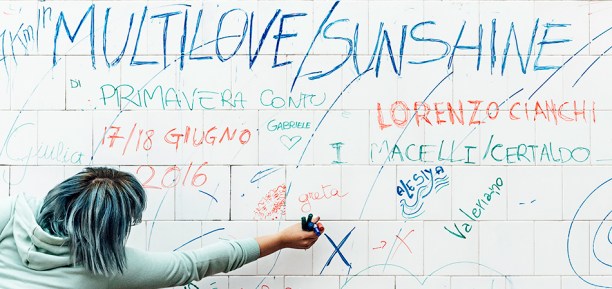 MULTILOVE/SUNSHINE
DI
PRIMAVERA CONTU
LORENZO CIANCHI
17/18 GIUGNO
GABRIELE
Giulia
I MACELLI/CERTALDO
2016
greta
ALESIYA
Valeriano
X
→ X